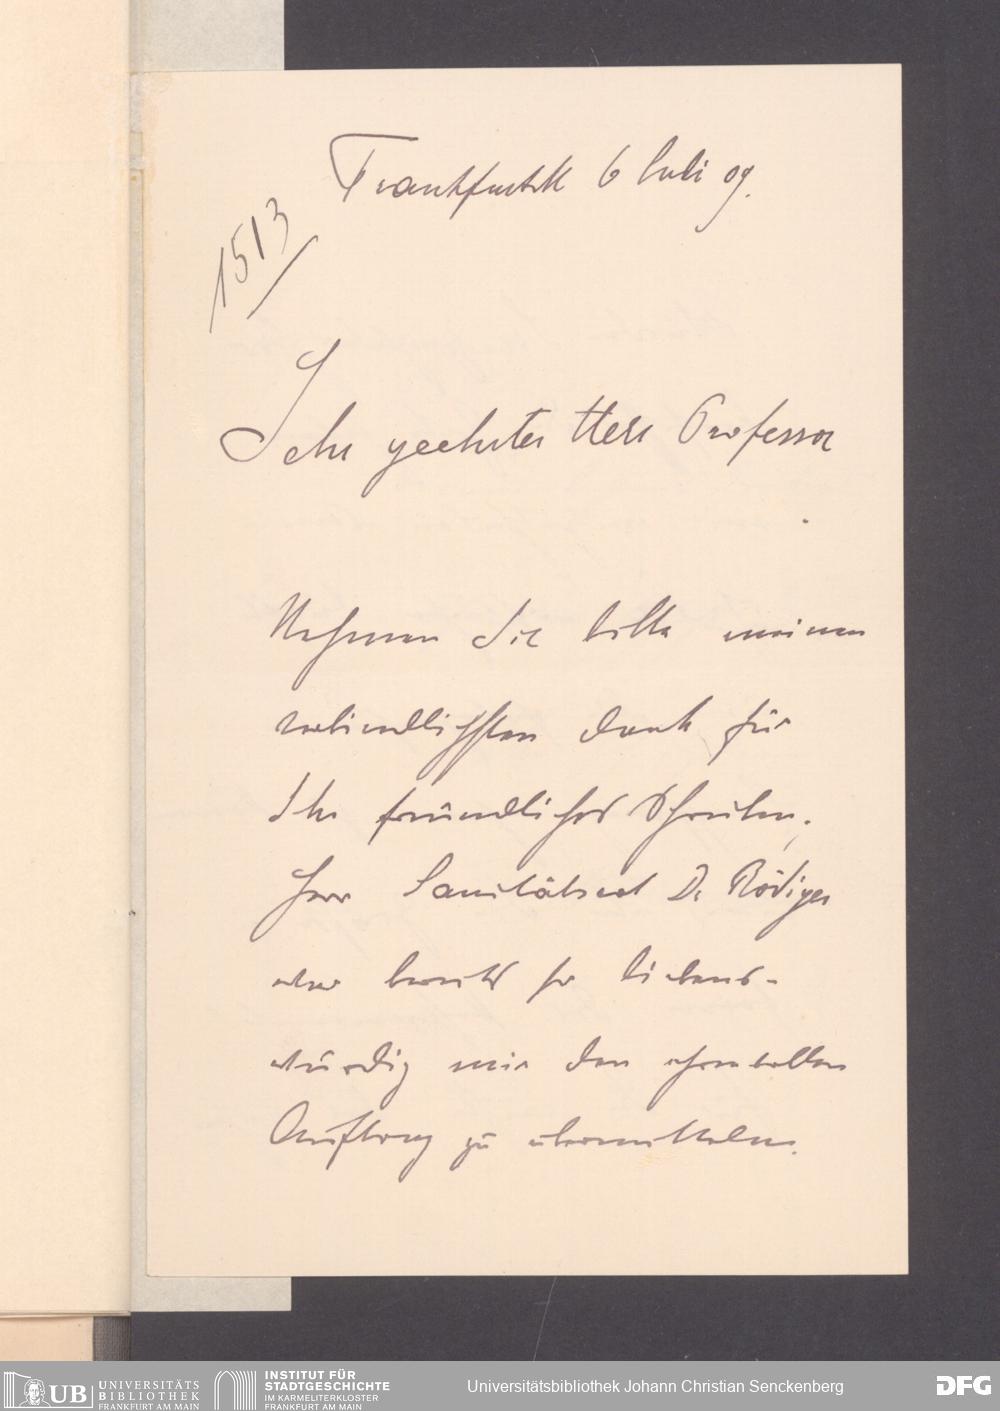 Frankfurt M 6 Juli 09.
1513
Sehr geehrter Herr Professor
Nehmen Sie bitte meinen
verbindlichsten Dank für
Ihr freundliches Schreiben.
Herr Sanitätsrat Dr Rödiger
war bereits so liebens-
würdig mir den ehrenvollen
Auftrag zu übermitteln.
UB UNIVERSITÄTS
BIBLIOTHEK
FRANKFURT AM MAIN
INSTITUT FÜR
STADTGESCHICHTE
IM KARMELITERKLOSTER
FRANKFURT AM MAIN
Universitätsbibliothek Johann Christian Senckenberg
DFG